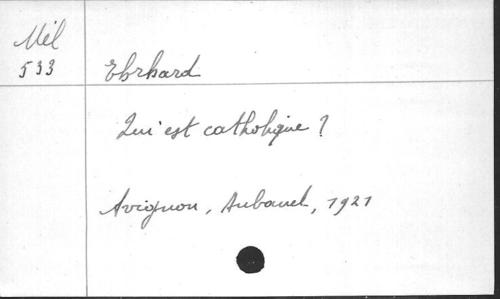 Mél
533
Ebrhard
Qui est catholique ?
Avignon, Aubanel, 1921